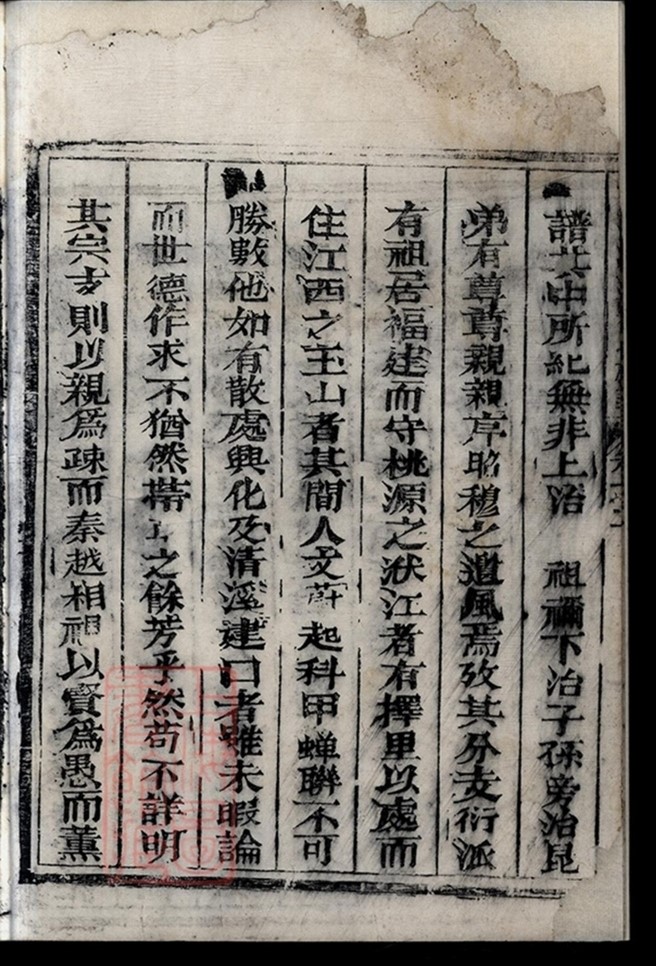 譜其中所紀無非上治 祖禰下治子孫旁治昆
弟有尊尊親親序昭穆之遺風焉攷其分支衍派
有祖居福建而守桃源之洑江者有擇里以處而
住江西之玉山者其間人文蔚起科甲蟬聯不可
勝數他如有散處興化及清溪建口者雖未暇論
而世德作求不猶然帶之餘芳乎然苟不詳明
其宗支則以親為疎而秦越相視以賢為愚而薰